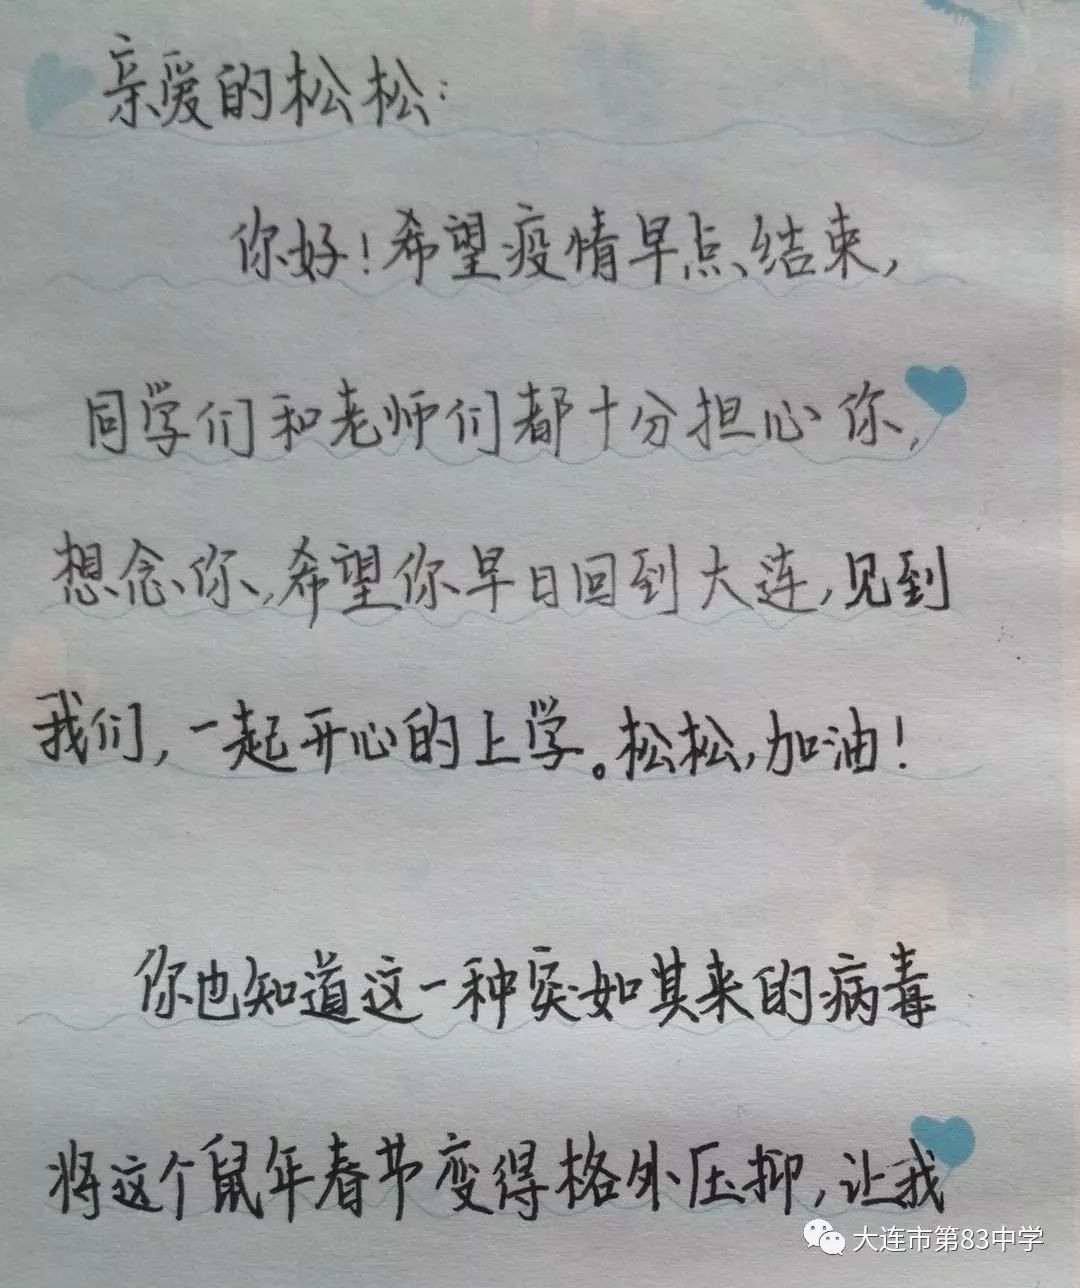 亲爱的松松：
你好！希望疫情早点结束，
同学们和老师们都十分担心你，
想念你，希望你早日回到大连，见到
我们，一起开心的上学。松松，加油！
你也知道这一种突如其来的病毒
将这个鼠年春节变得格外压抑，让我
大连市第83中学